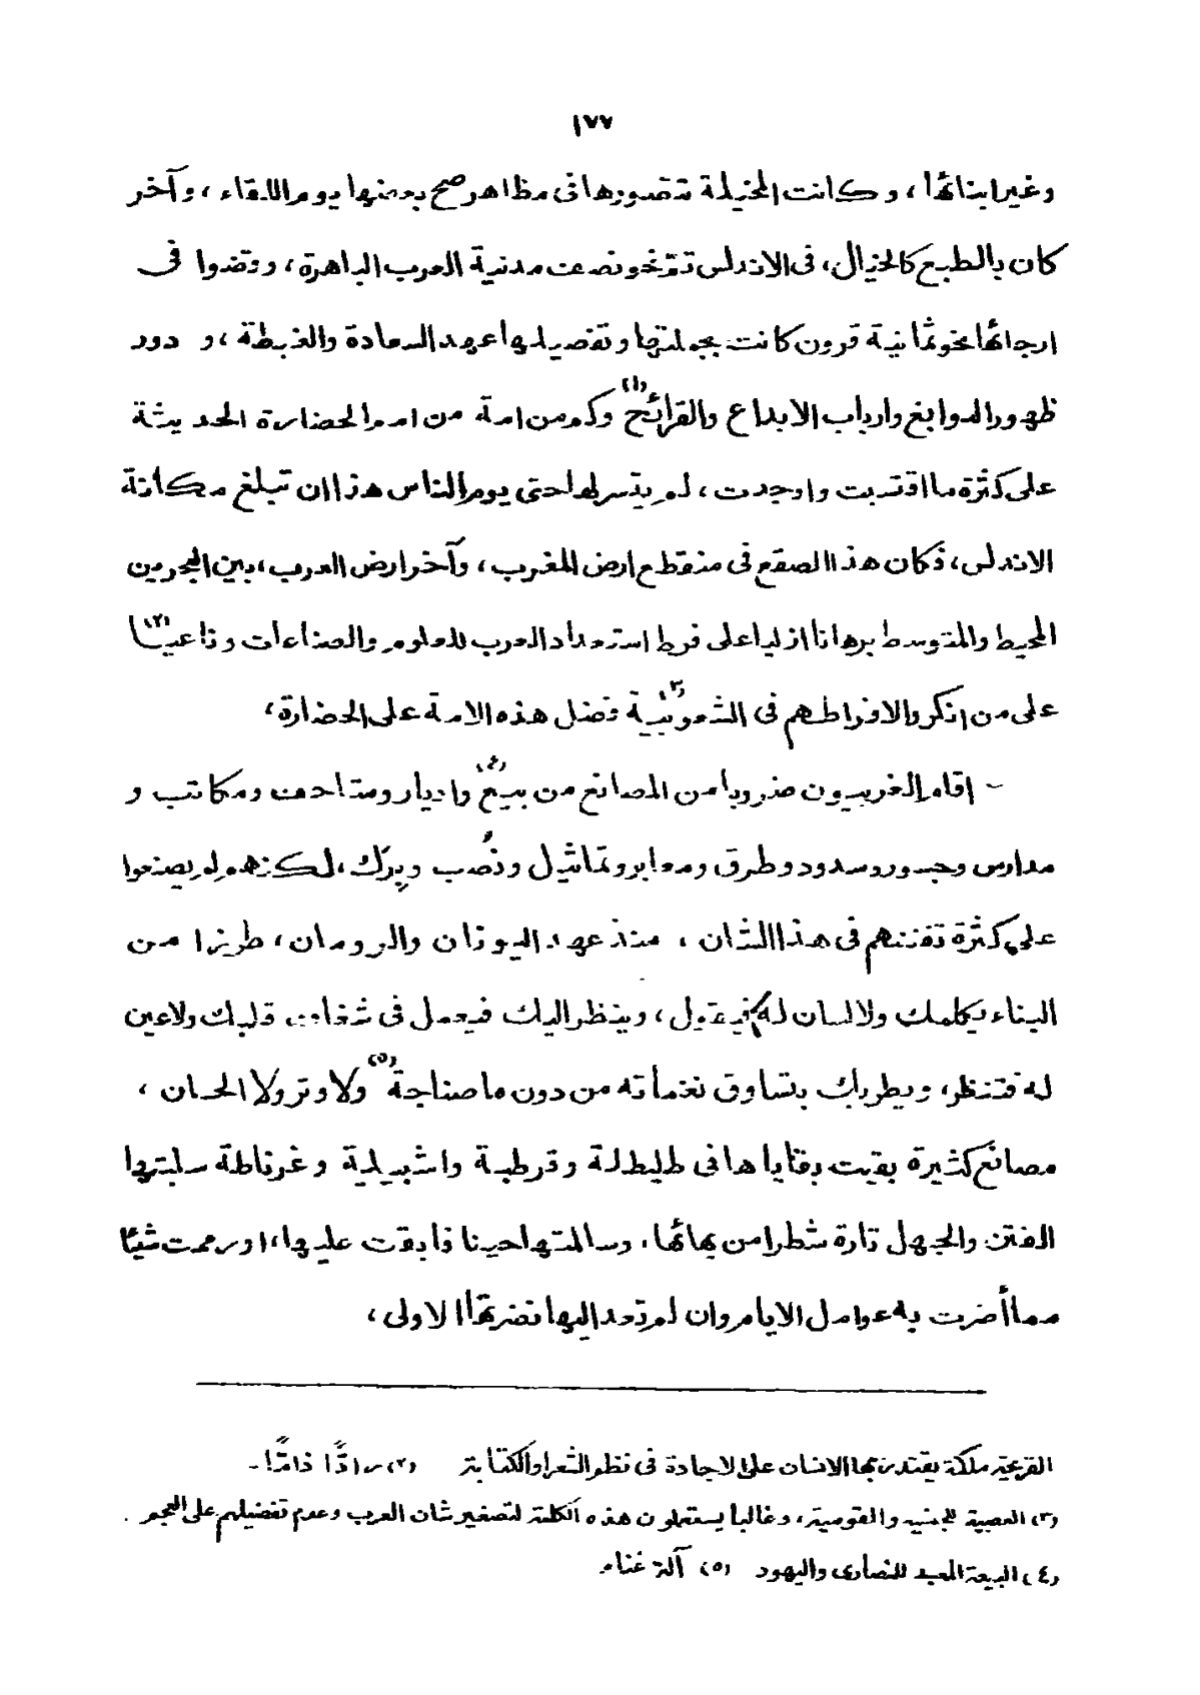 ١٧٧
وغير ابنائها ، وكانت المخيلة تتصورها فى مظاهر صح بعضها يوم اللقاء ، وآخر
كان بالطبع كالخيال ، فى الاندلس تمت نحو نصف مدنية العرب الباهرة ، وقضوا فى
ارجائها نحو ثمانية قرون كانت بجملتها وتفصيلها عهد السعادة والغبطة ، و دور
ظهور النوابغ وارباب الابداع والقرائح (١) وكم من امة من امم الحضارة الحديثة
على كثرة ما اقتبست واوجدت ، لم يتيسر لها حتى يوم الناس هذا ان تبلغ مكانة
الاندلس ، فكان هذا الصقع فى منقطع ارض المغرب ، وآخر ارض العرب ، بين البحرين
المحيط والمتوسط برهانا ازليا على فرط استعداد العرب للعلوم والصناعات وناعيًا (٢)
على من انكر والافراطهم فى الشعوبية (٣) فضل هذه الامة على الحضارة ،
- اقام الغربيون ضروبا من المصانع من بيع (٤) واديار ومتاحف ومكاتب و
مدارس وجسور وسدود وطرق ومعابر وتماثيل ونُصب وبِرَك ، لكنهم لم يصنعوا
على كثرة تفننهم فى هذا الشان ، منذ عهد اليونان والرومان ، طرزا من
البناء يكلمك ولا لسان له فيقول ، وينظر اليك فيعمل فى شغاف قلبك ولا عين
له فتنظر ، ويطربك بتساوق نغماته من دون ما صناجة (٥) ولا وتر ولا الحان ،
مصانع كثيرة بقيت بقاياها فى طليطلة وقرطبة واشبيلية وغرناطة سلبتها
الفتن والجهل تارة شطرا من بهائها ، وسالمتها حينا فابقت عليها ، اورممت شيئا
مما أضرت به عوامل الايام وان لم تعد اليها نضرتها الاولى ،
القريحة ملكة يقتدر بها الانسان على الاجادة فى نظم الشعر او الكتابة (٢) رادًّا ذامًّا .-
(٣) العصبية للجنسية والقومية ، وغالبا يستعملون هذه الكلمة لتصغير شان العرب وعدم تفضيلهم على العجم .
(٤) البيعة المعبد للنصارى واليهود (٥) آلة غناء